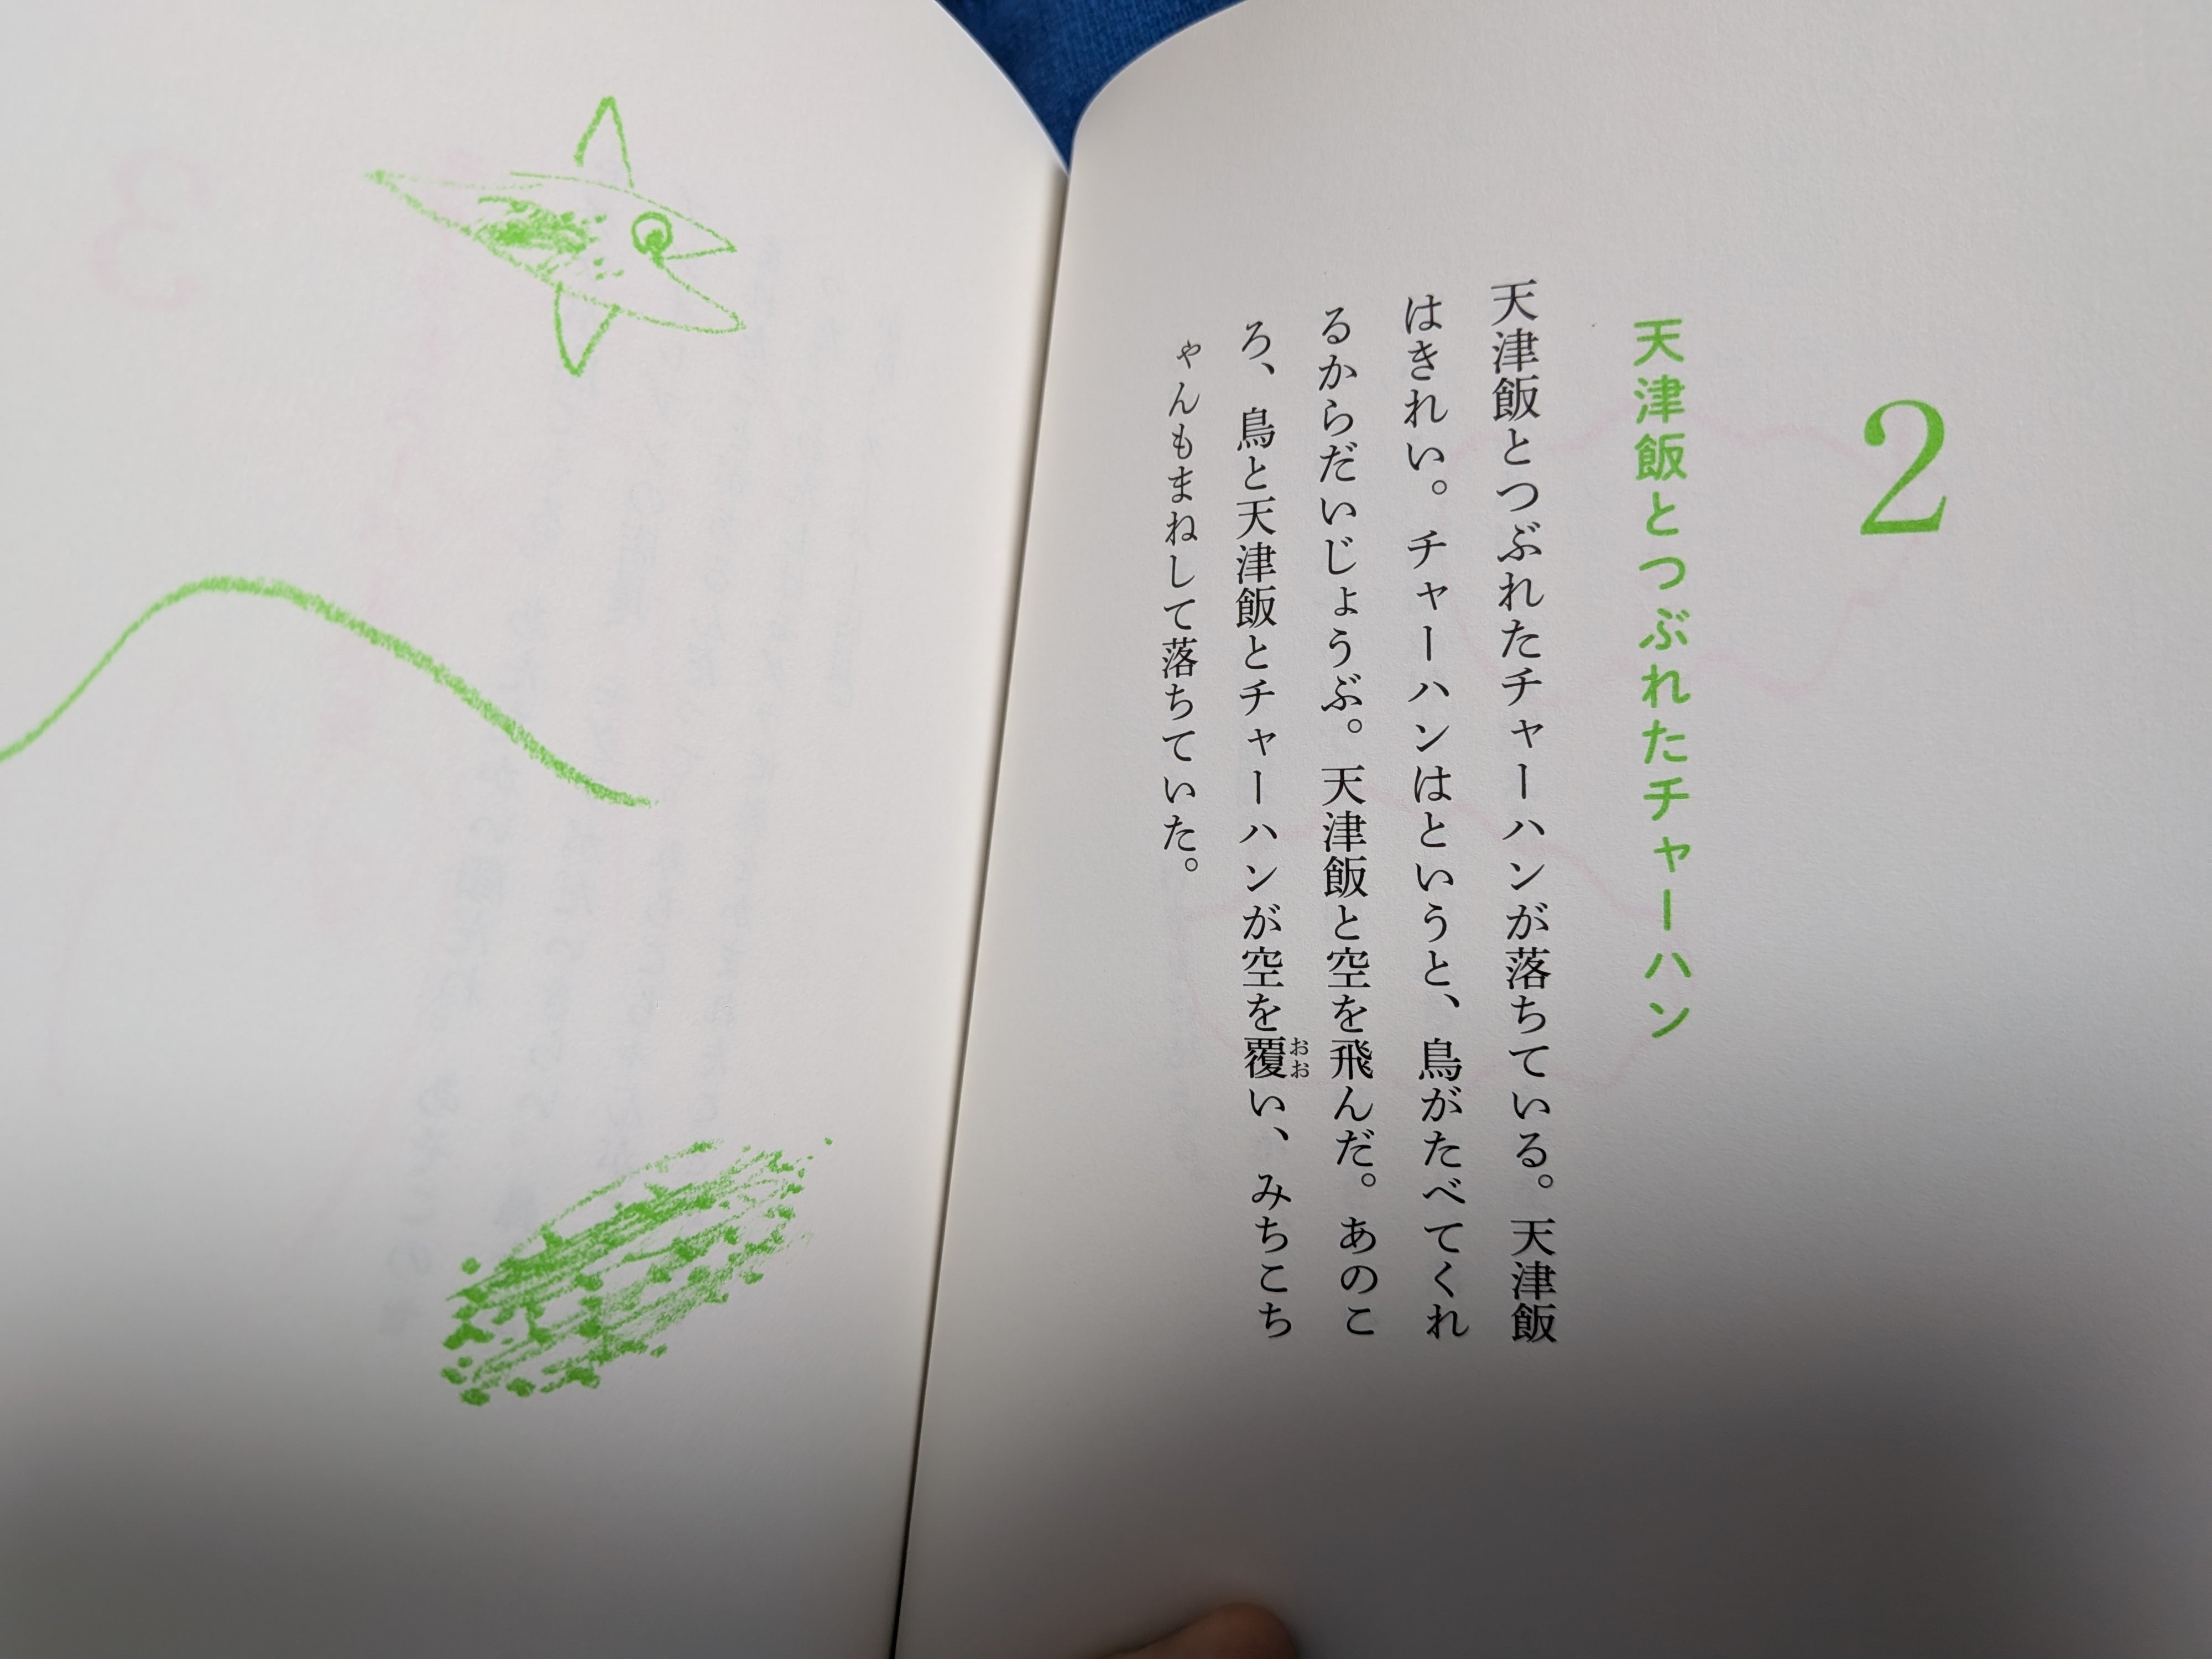 2
天津飯とつぶれたチャーハン
天津飯とつぶれたチャーハンが落ちている。天津飯
はきれい。チャーハンはというと、鳥がたべてくれ
るからだいじょうぶ。天津飯と空を飛んだ。あのこ
ろ、鳥と天津飯とチャーハンが空を覆い、みちこち
おお
ゃんもまねして落ちていた。
3